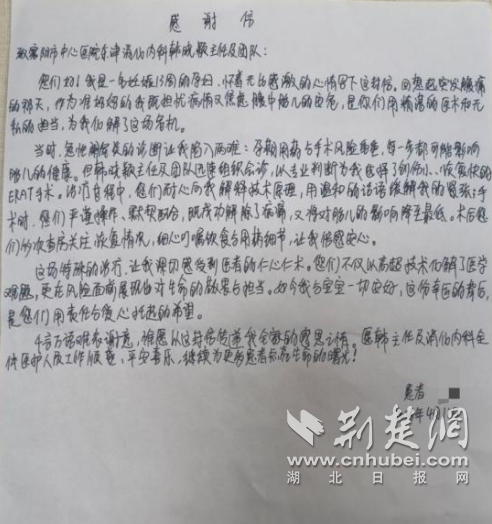 感谢信
致襄阳市中心医院东津消化内科韩晓敏主任及团队：
你们好！我是一名妊娠13周的孕妇，怀着无比感激的心情写下这封信。回想起突发腹痛
的那天，作为准妈妈的我既担忧病情又焦虑腹中胎儿的安危，是你们用精湛的医术和无
私的担当，为我们解了这场危机。
当时，急性阑尾炎的诊断让我陷入两难：孕期用药与手术风险重重，每一步都可能影响
胎儿的健康。但韩主任及团队迅速组织会诊，以专业判断为我选择了创伤小、恢复快的
ERAT手术。治疗过程中，您们耐心向我解释技术原理，用温和的话语缓解我的紧张；手
术时，您们严谨操作、默契配合，既成功解除了病痛，又将对胎儿的影响降至最低。术后您
们多次查房关注恢复情况，细心叮嘱饮食与用药细节，让我倍感安心。
这场特殊的治疗，让我深切感受到医者的仁心仁术。您们不仅以高超技术化解了医学
难题，更在风险面前展现出对生命的敬畏与担当。如今我与宝宝一切安好，这份幸运的背后，
是您们用责任与爱心托起的希望。
千言万语难表谢意，谨愿以这封信传递我全家的感恩之情。愿韩主任及消化内科全
体医护人员工作顺遂，平安喜乐，继续为更多患者点亮生命的曙光！
患者
年4月1
荆楚网
www.cnhubei.com
湖北日报网